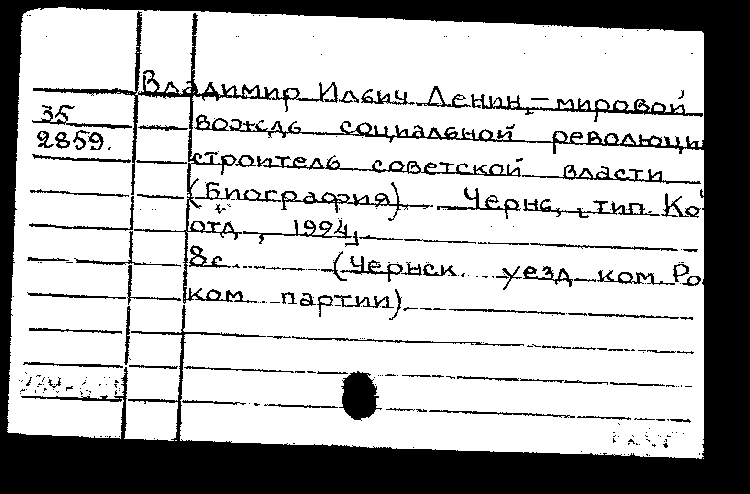 Владимир Ильич Ленин, – мировой
35 вождь социальной революци
2859. строитель советской власти
(Биография) Чернь, тип. Ко
отд, 1924,
8с. (Чернск. уезд. ком. Ро
ком партии).